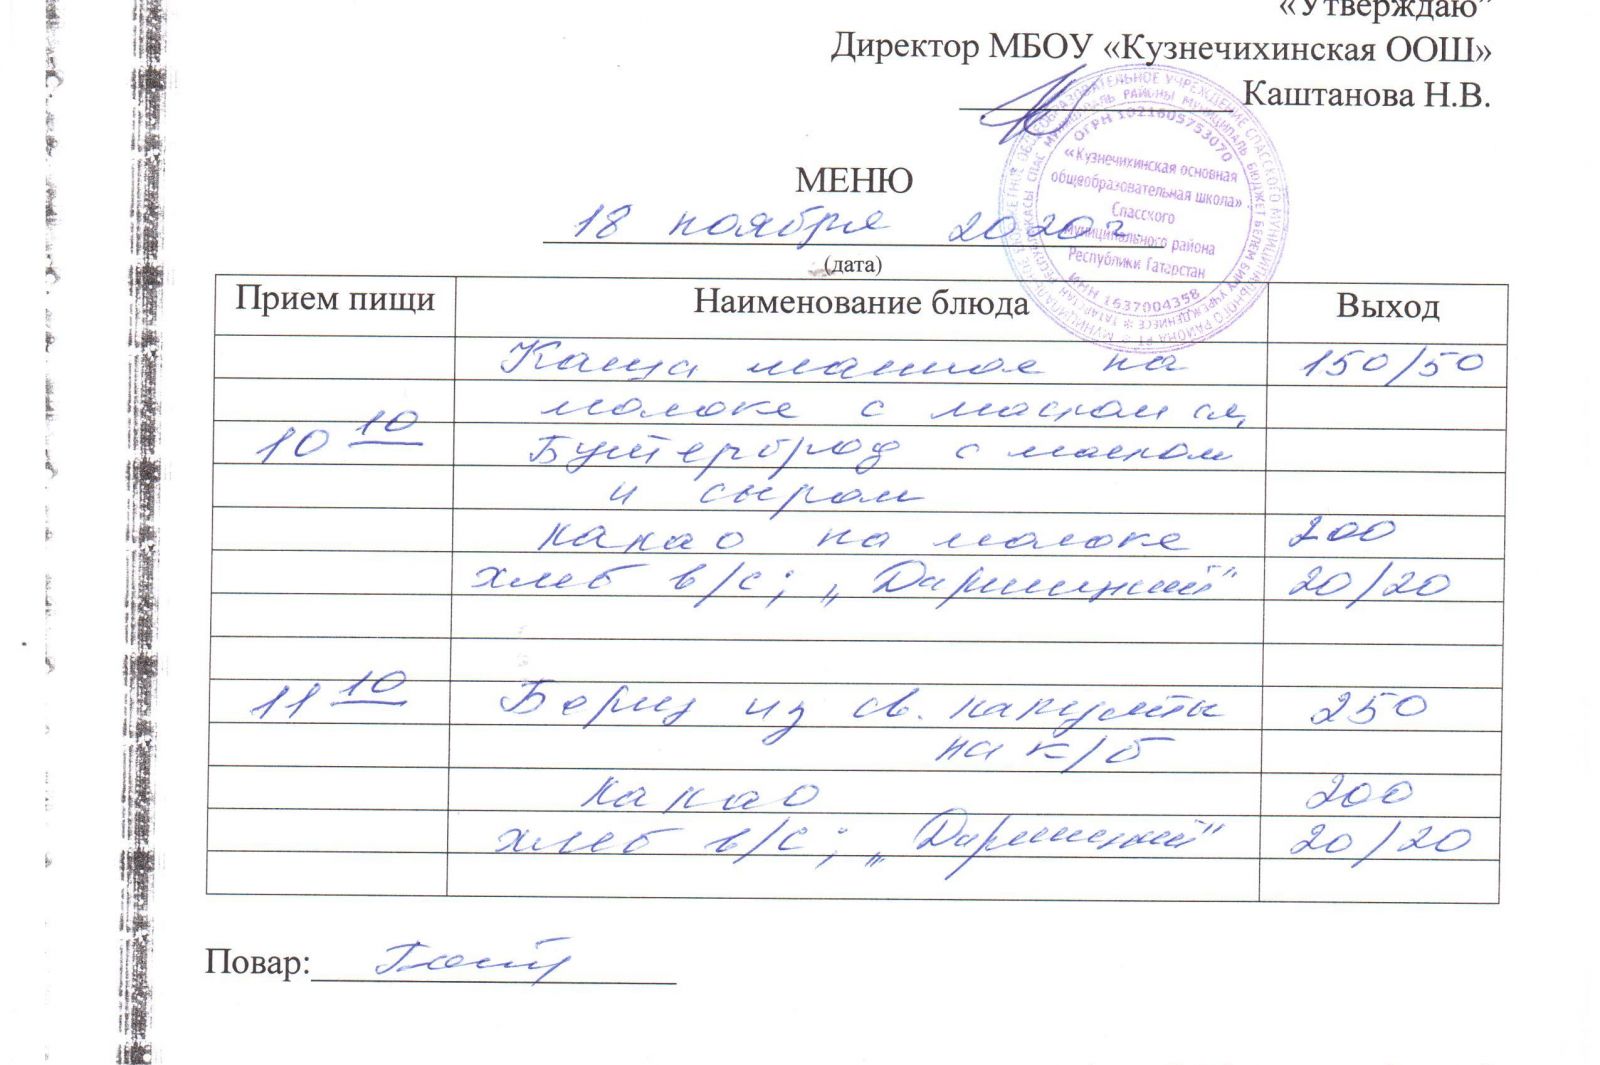 «Утверждаю”
Директор МБОУ «Кузнечихинская ООШ»
Каштанова Н.В.
МЕНЮ
18 ноября 2020г
(дата)
Прием пищи Наименование блюда Выход
Каша манная на 150/50
молоке с маслом сл,
10 10 Бутерброд с маслом
и сыром
какао на молоке 200
хлеб в/с; „Дарницкий" 20/20
11 10 Борщ из св. капусты 250
на к/б
какао 200
хлеб в/с; „Дарницкий" 20/20
Повар:
ОГРН 1021605753070
«Кузнечихинская основная
общеобразовательная школа»
Спасского
муниципального района
Республики Татарстан
ИНН 1637004358